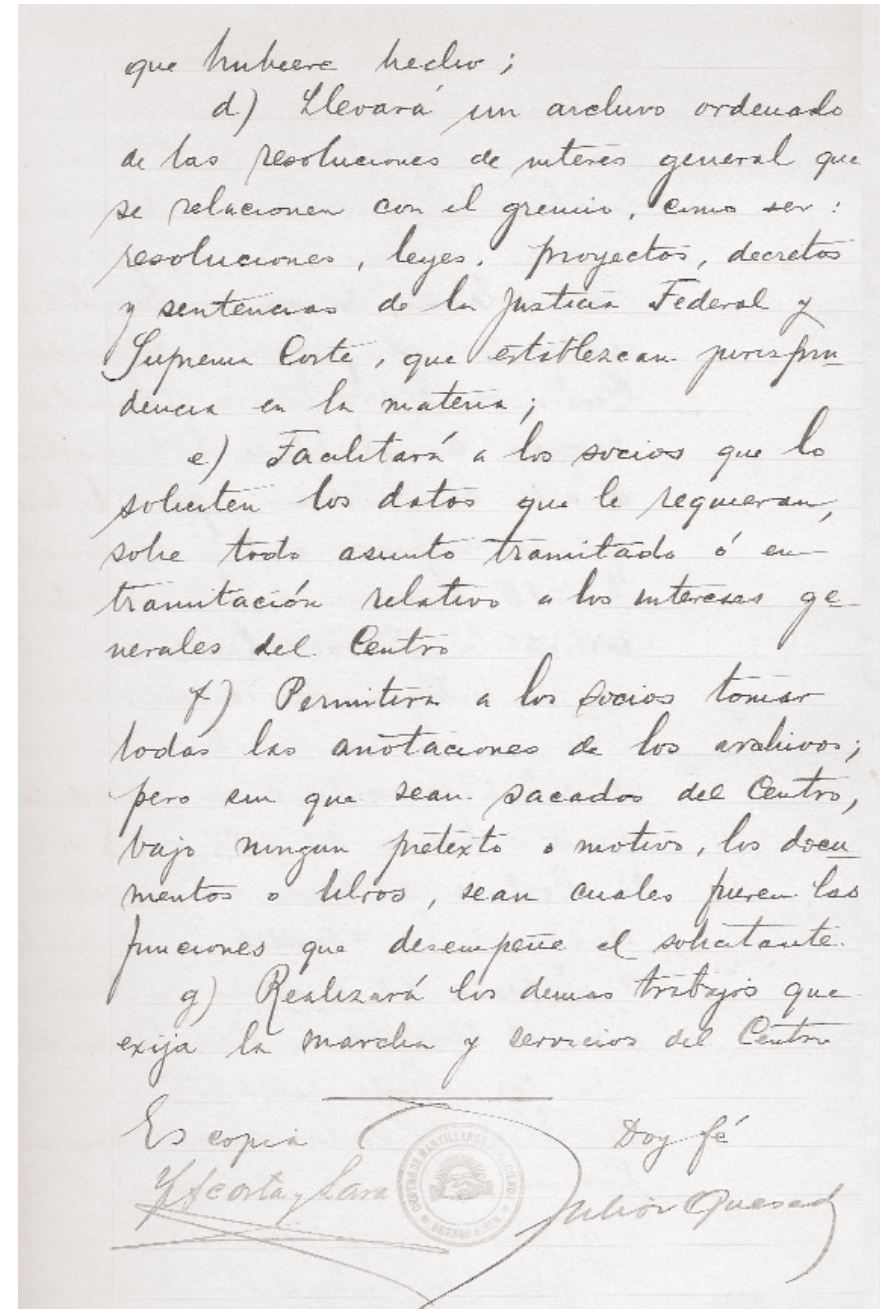 que hubiere hecho;
d) Llevará un archivo ordenado
de las resoluciones de interés general que
se relacionen con el gremio, como ser:
resoluciones, leyes, proyectos, decretos
y sentencias de la Justicia Federal y
Suprema Corte, que establezcan jurispru-
dencia en la materia;
e) Facilitará a los socios que lo
soliciten los datos que le requieran,
sobre todo asunto tramitado ó en
tramitación relativo a los intereses ge-
nerales del Centro
f) Permitirá a los socios tomar
todas las anotaciones de los archivos;
pero sin que sean sacados del Centro,
bajo ningun pretexto o motivo, los docu-
mentos o libros, sean cuales fueren las
funciones que desempeñe el solicitante.
g) Realizará los demas trabajos que
exija la marcha y servicios del Centro
Es copia Doy fé
Acosta y Lara
CENTRO DE MARTILLEROS
BUENOS AIRES
Quesada